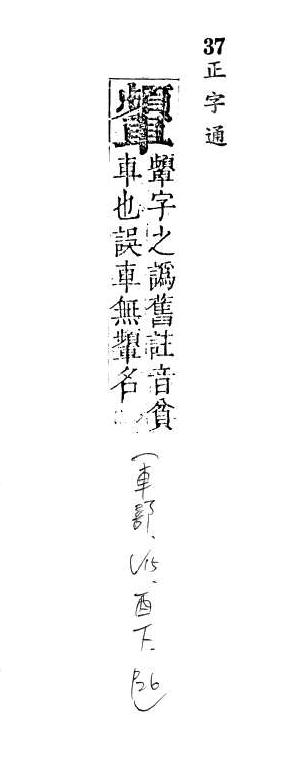 37 正字通
字之譌舊註音貧
車也誤車無名
(車部、V15、酉下、P26)